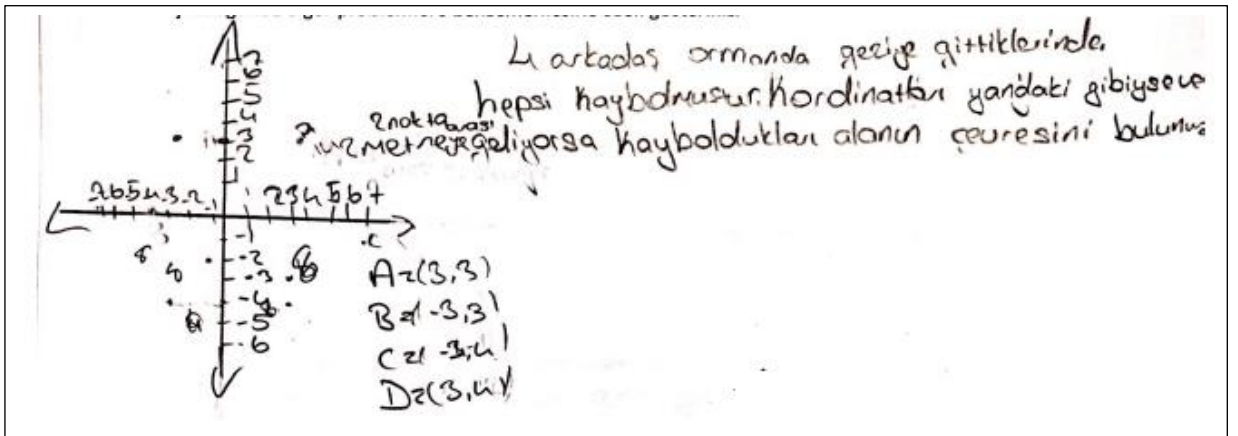 4 arkadaş ormanda geziye gittiklerinde
hepsi kaybolmuştur. Kordinatları yandaki gibiyse ve
2 nokta arası
metreye geliyorsa kayboldukları alanın çevresini bulunuz
7
6
5
4
3
2
1
7 6 5 4 -3 -2 -1 1 2 3 4 5 6 7
-1
-2
-3
-4
-5
-6
A=(3,3)
B=(-3,3)
C=(-3,4)
D=(3,4)